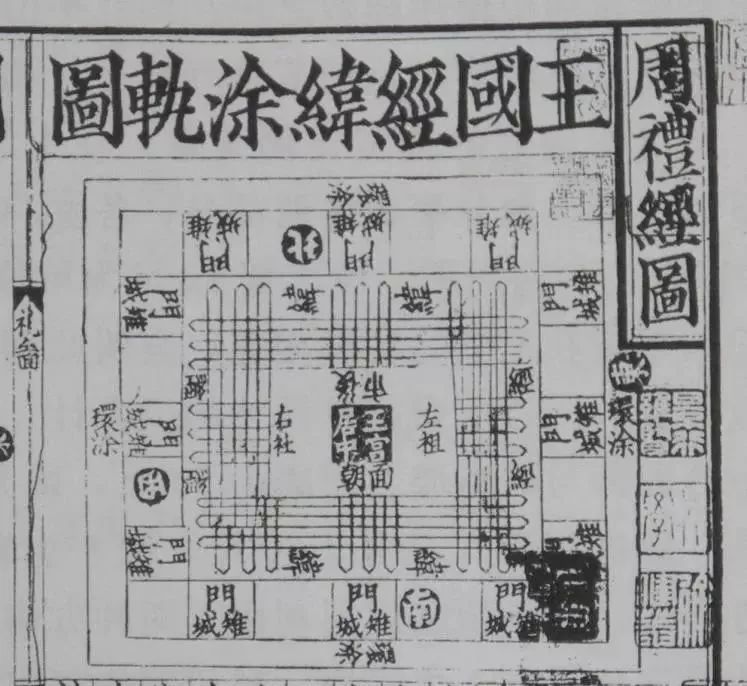 周禮經圖
王國經緯涂軌圖
環涂
城雉
門
城雉
門
城雉
門
北
緯
緯
城雉
門
雉城
門
東
市後
王宮
居中
面
朝
左祖
右社
環涂
城雉
門
經
雉城
門
環涂
西
城雉
門
門
雉
緯
緯
門
城雉
門
城雉
門
城雉
南
環涂
禮圖